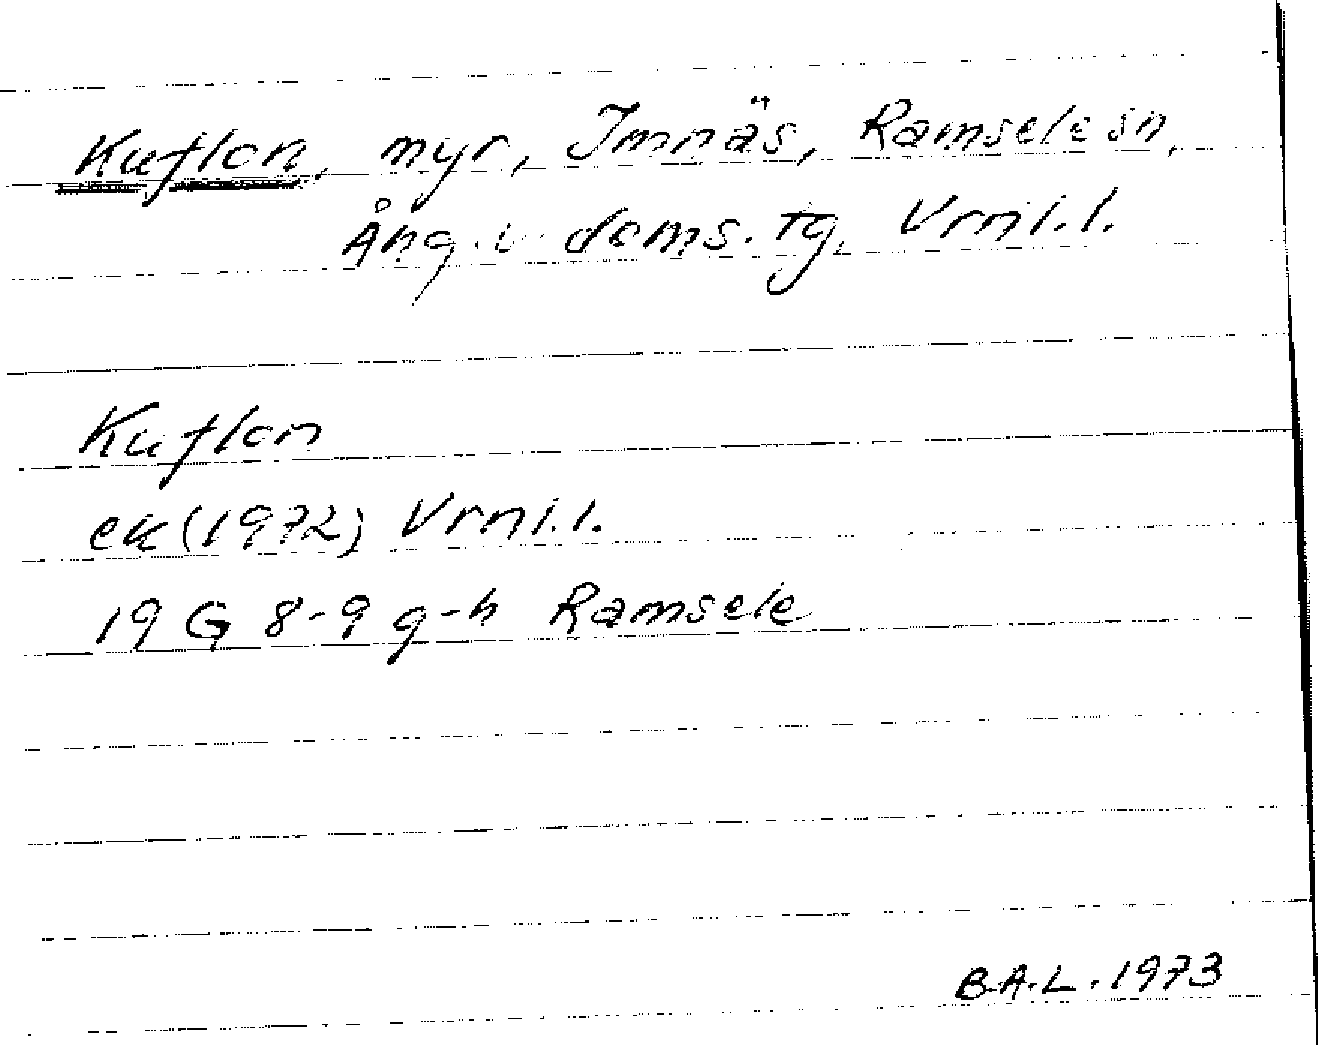 Kuflon, myr, Imnäs, Ramsele sn,
Ång. v. doms. tg. Vrnl. l.
Kuflon
ek (1972) Vrnl. l.
19 G 8-9 g-h Ramsele
B.A.L. 1973